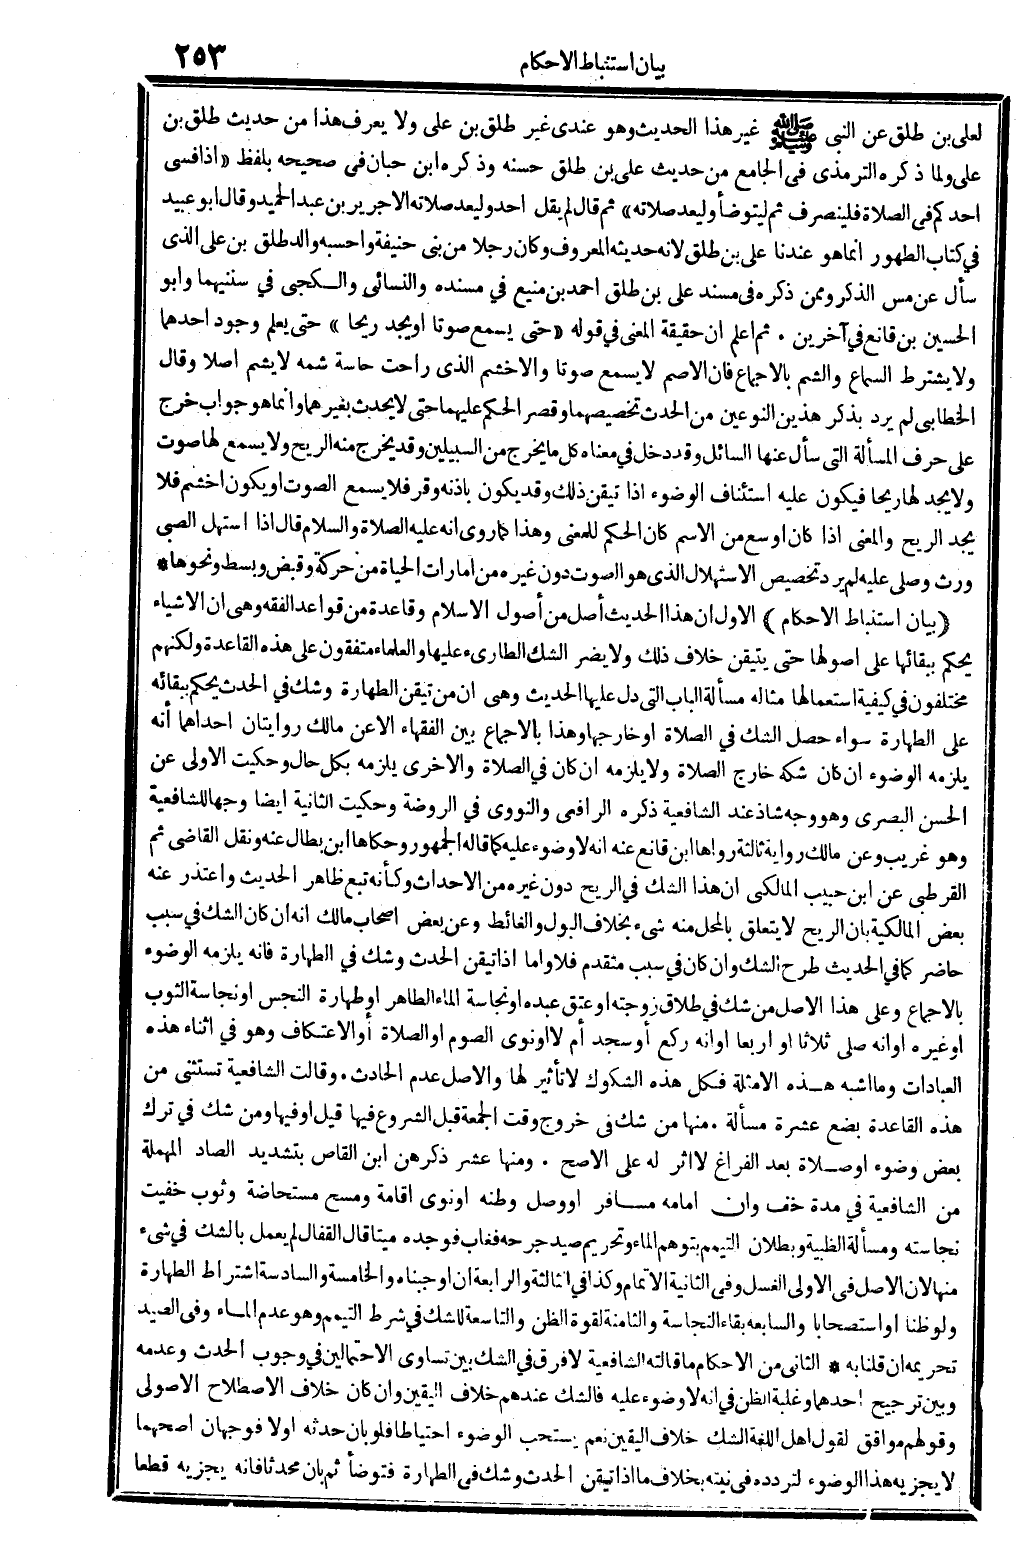 بيان استنباط الاحكام ٢٥٣
لعلى بن طلق عن النبى ﷺ غير هذا الحديث وهو عندى غير طلق بن على ولا يعرف هذا من حديث طلق بن
على ولما ذكره الترمذى فى الجامع من حديث على بن طلق حسنه وذكره ابن حبان فى صحيحه بلفظ «اذا فسى
احدكم فى الصلاة فلينصرف ثم ليتوضأ وليعد صلاته» ثم قال لم يقل احد وليعد صلاته الا جرير بن عبد الحميد وقال ابو عبيد
في كتاب الطهور انما هو عندنا على بن طلق لانه حديثه المعروف وكان رجلا من بنى حنيفة واحسبه والد طلق بن على الذى
سأل عن مس الذكر وممن ذكره فى مسند على بن طلق احمد بن منيع في مسنده والنسائى والكجى في سننيهما وابو
الحسين بن قانع في آخرين . ثم اعلم ان حقيقة المعنى في قوله «حتى يسمع صوتا او يجد ريحا» حتى يعلم وجود احدهما
ولا يشترط السماع والشم بالاجماع فان الاصم لا يسمع صوتا والاخشم الذى راحت حاسة شمه لا يشم اصلا وقال
الخطابى لم يرد بذكر هذين النوعين من الحدث تخصيصهما وقصر الحكم عليهما حتى لا يحدث بغيرهما وانما هو جواب خرج
على حرف المسألة التى سأل عنها السائل وقد دخل في معناه كل ما يخرج من السبيلين وقد يخرج منه الريح ولا يسمع لها صوت
ولا يجد لها ريحا فيكون عليه استئناف الوضوء اذا تيقن ذلك وقد يكون باذنه وقر فلا يسمع الصوت او يكون اخشم فلا
يجد الريح والمعنى اذا كان اوسع من الاسم كان الحكم للمعنى وهذا كما روى انه عليه الصلاة والسلام قال اذا استهل الصبى
ورث وصلى عليه لم يرد تخصيص الاستهلال الذى هو الصوت دون غيره من امارات الحياة من حركة وقبض وبسط ونحوها *
﴿بيان استنباط الاحكام﴾ الاول ان هذا الحديث أصل من أصول الاسلام وقاعدة من قواعد الفقه وهى ان الاشياء
يحكم ببقائها على اصولها حتى يتيقن خلاف ذلك ولا يضر الشك الطارىء عليها والعلماء متفقون على هذه القاعدة ولكنهم
مختلفون في كيفية استعمالها مثاله مسألة الباب التى دل عليها الحديث وهى ان من تيقن الطهارة وشك في الحدث يحكم ببقائه
على الطهارة سواء حصل الشك في الصلاة او خارجها وهذا بالاجماع بين الفقهاء الا عن مالك روايتان احداهما أنه
يلزمه الوضوء ان كان شكه خارج الصلاة ولا يلزمه ان كان في الصلاة والاخرى يلزمه بكل حال وحكيت الاولى عن
الحسن البصرى وهو وجه شاذ عند الشافعية ذكره الرافعى والنووى في الروضة وحكيت الثانية ايضا وجها للشافعية
وهو غريب وعن مالك رواية ثالثة رواها ابن قانع عنه انه لا وضوء عليه كما قاله الجمهور وحكاها ابن بطال عنه ونقل القاضى ثم
القرطبى عن ابن حبيب المالكى ان هذا الشك في الريح دون غيره من الاحداث وكأنه تبع ظاهر الحديث واعتذر عنه
بعض المالكية بان الريح لا يتعلق بالمحل منه شىء بخلاف البول والغائط وعن بعض اصحاب مالك انه ان كان الشك في سبب
حاضر كما في الحديث طرح الشك وان كان في سبب متقدم فلا واما اذا تيقن الحدث وشك في الطهارة فانه يلزمه الوضوء
بالاجماع وعلى هذا الاصل من شك في طلاق زوجته او عتق عبده او نجاسة الماء الطاهر او طهارة النجس او نجاسة الثوب
او غيره او انه صلى ثلاثا او اربعا او انه ركع أو سجد أم لا او نوى الصوم او الصلاة أو الاعتكاف وهو في اثناء هذه
العبادات وما اشبه هذه الامثلة فكل هذه الشكوك لا تأثير لها والاصل عدم الحادث . وقالت الشافعية تستثنى من
هذه القاعدة بضع عشرة مسألة . منها من شك فى خروج وقت الجمعة قبل الشروع فيها قيل او فيها ومن شك في ترك
بعض وضوء او صلاة بعد الفراغ لا اثر له على الاصح . ومنها عشر ذكرهن ابن القاص بتشديد الصاد المهملة
من الشافعية في مدة خف وان امامه مسافر او وصل وطنه او نوى اقامة ومسح مستحاضة وثوب خفيت
نجاسته ومسألة الظبية وبطلان التيمم بتوهم الماء وتحريم صيد جرحه فغاب فوجده ميتا قال القفال لم يعمل بالشك في شىء
منها لان الاصل فى الاولى الغسل وفى الثانية الاتمام وكذا في الثالثة والرابعة ان اوجبناه والخامسة والسادسة اشتراط الطهارة
ولو ظنا او استصحابا والسابعه بقاء النجاسة والثامنة لقوة الظن والتاسعة للشك في شرط التيمم وهو عدم الماء وفى الصيد
تحريمه ان قلنا به * الثانى من الاحكام ما قالته الشافعية لا فرق في الشك بين تساوى الاحتمالين في وجوب الحدث وعدمه
وبين ترجيح احدهما وغلبة الظن في انه لا وضوء عليه فالشك عندهم خلاف اليقين وان كان خلاف الاصطلاح الاصولى
وقولهم موافق لقول اهل اللغة الشك خلاف اليقين نعم يستحب الوضوء احتياطا فلو بان حدثه اولا فوجهان اصحهما
لا يجزيه هذا الوضوء لتردده في نيته بخلاف ما اذا تيقن الحدث وشك فى الطهارة فتوضأ ثم بان محدثا فانه يجزيه قطعا